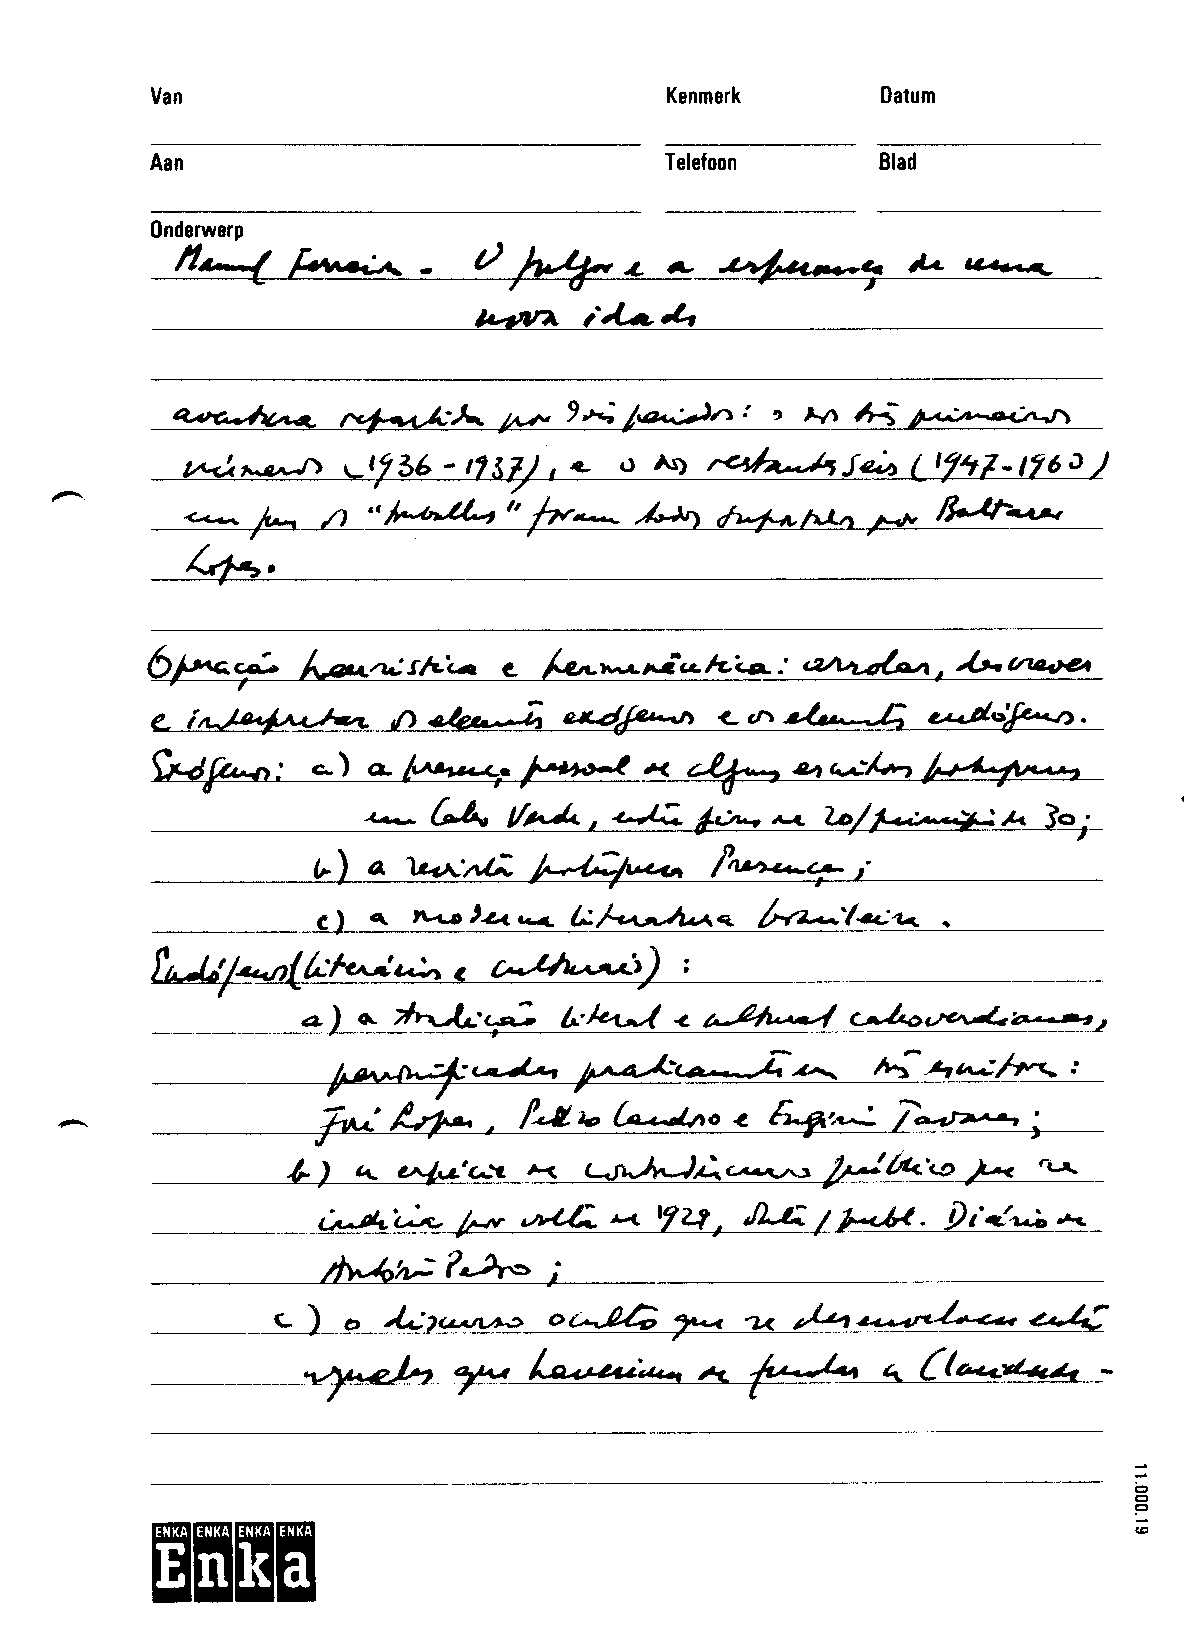 Van Kenmerk Datum
Aan Telefoon Blad
Onderwerp
Manuel Ferreira - O fulgor e a esperança de uma
nova idade
aventura repartida por dois períodos: o dos três primeiros
números (1936-1937), e o dos restantes seis (1947-1960)
em que os "trabalhos" foram todos suportados por Baltasar
Lopes.
Operação heurística e hermenêutica: arrolar, descrever
e interpretar os elementos exógenos e os elementos endógenos.
Exógenos: a) a presença pessoal de alguns escritores portugueses
em Cabo Verde, entre fins de 20/princípio de 30;
b) a revista portuguesa Presença;
c) a moderna literatura brasileira.
Endógenos (literários e culturais):
a) a tradição literal e cultural caboverdianas,
personificadas praticamente em três escritores:
José Lopes, Pedro Cardoso e Eugénio Tavares;
b) a espécie de contradiscurso público que se
indicia por volta de 1929, data/publ. Diário de
António Pedro;
c) o discurso oculto que se desenvolveu entre
aqueles que haveriam de fundar a Claridade -
11.000.19
ENKA ENKA ENKA ENKA
Enka